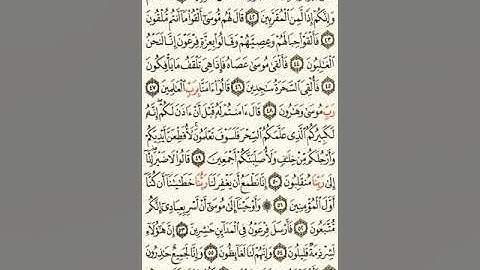 وَإِنَّكُمْ إِذًا لَّمِنَ ٱلْمُقَرَّبِينَ ٤٢ قَالَ لَهُم مُّوسَىٰٓ أَلْقُوا۟ مَآ أَنتُم مُّلْقُونَ
٤٣ فَأَلْقَوْا۟ حِبَالَهُمْ وَعِصِيَّهُمْ وَقَالُوا۟ بِعِزَّةِ فِرْعَوْنَ إِنَّا لَنَحْنُ
ٱلْغَـٰلِبُونَ ٤٤ فَأَلْقَىٰ مُوسَىٰ عَصَاهُ فَإِذَا هِىَ تَلْقَفُ مَا يَأْفِكُونَ
٤٥ فَأُلْقِىَ ٱلسَّحَرَةُ سَـٰجِدِينَ ٤٦ قَالُوٓا۟ ءَامَنَّا بِرَبِّ ٱلْعَـٰلَمِينَ ٤٧
رَبِّ مُوسَىٰ وَهَـٰرُونَ ٤٨ قَالَ ءَامَنتُمْ لَهُۥ قَبْلَ أَنْ ءَاذَنَ لَكُمْ ۖ إِنَّهُۥ
لَكَبِيرُكُمُ ٱلَّذِى عَلَّمَكُمُ ٱلسِّحْرَ فَلَسَوْفَ تَعْلَمُونَ ۚ لَأُقَطِّعَنَّ أَيْدِيَكُمْ
وَأَرْجُلَكُم مِّنْ خِلَـٰفٍ وَلَأُصَلِّبَنَّكُمْ أَجْمَعِينَ ٤٩ قَالُوا۟ لَا ضَيْرَ ۖ إِنَّآ
إِلَىٰ رَبِّنَا مُنقَلِبُونَ ٥٠ إِنَّا نَطْمَعُ أَن يَغْفِرَ لَنَا رَبُّنَا خَطَـٰيَـٰنَآ أَن كُنَّآ
أَوَّلَ ٱلْمُؤْمِنِينَ ٥١ ۞ وَأَوْحَيْنَآ إِلَىٰ مُوسَىٰٓ أَنْ أَسْرِ بِعِبَادِىٓ إِنَّكُم
مُّتَّبَعُونَ ٥٢ فَأَرْسَلَ فِرْعَوْنُ فِى ٱلْمَدَآئِنِ حَـٰشِرِينَ ٥٣ إِنَّ هَـٰٓؤُلَآءِ
لَشِرْذِمَةٌ قَلِيلُونَ ٥٤ وَإِنَّهُمْ لَنَا لَغَآئِظُونَ ٥٥ وَإِنَّا لَجَمِيعٌ حَـٰذِرُونَ